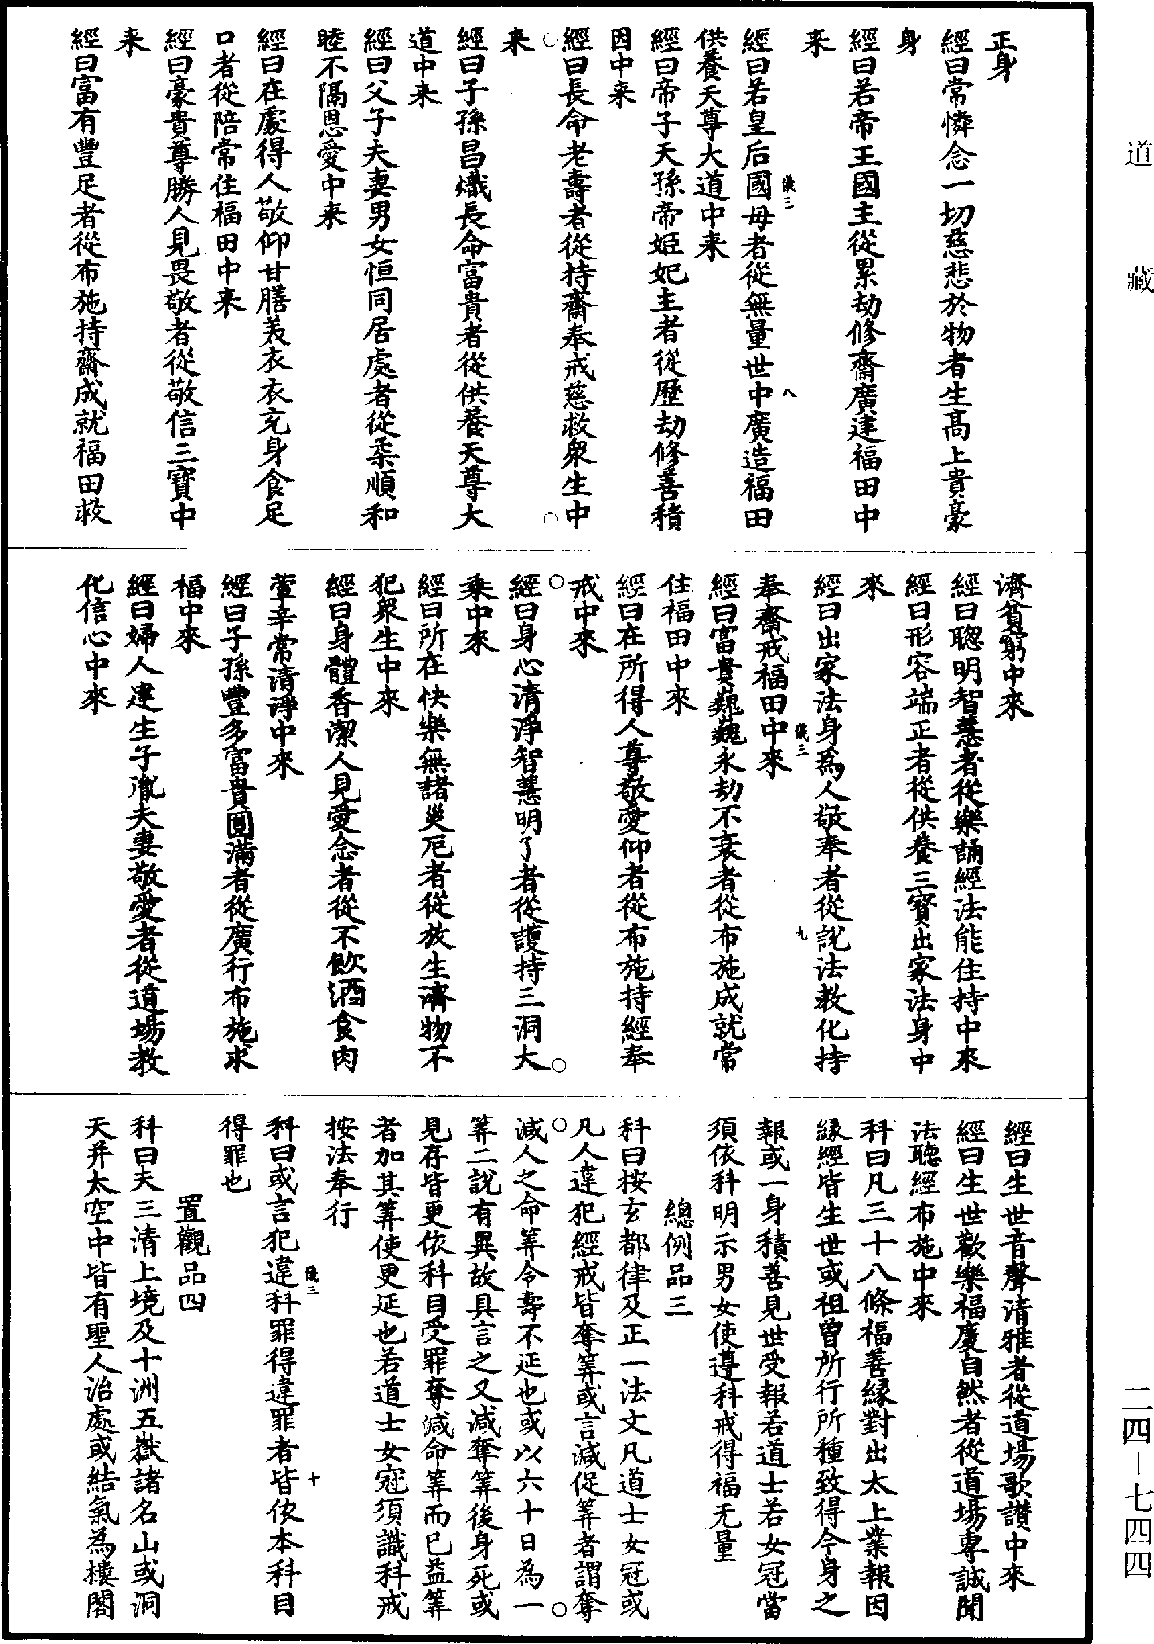 道藏
正身
經曰常憐念一切慈悲於物者生高上貴豪
身
經曰若帝王國主從累劫修齋廣建福田中
来
經曰若皇后國母者從無量世中廣造福田
儀三 八
供養天尊大道中来
經曰帝子天孫帝姬妃主者從歷劫修善積
因中来
經曰長命老壽者從持齋奉戒慈救衆生中
来
經曰子孫昌熾長命富貴者從供養天尊大
道中来
經曰父子夫妻男女恒同居處者從柔順和
睦不隔恩愛中来
經曰在處得人敬仰甘膳美衣衣充身食足
口者從陪常住福田中来
經曰豪貴尊勝人見畏敬者從敬信三寶中
来
經曰富有豐足者從布施持齋成就福田救
濟貧窮中來
經曰聰明智慧者從樂誦經法能住持中來
經曰形容端正者從供養三寶出家法身中
來
經曰出家法身為人敬奉者從說法教化持
儀三 九
奉齋戒福田中來
經曰富貴巍巍永劫不衰者從布施成就常
住福田中來
經曰在所得人尊敬愛仰者從布施持經奉
戒中來
經曰身心清淨智慧明了者從護持三洞大
乘中來
經曰所在快樂無諸災厄者從放生濟物不
犯衆生中來
經曰身體香潔人見愛念者從不飲酒食肉
葷辛常清淨中來
經曰子孫豐多富貴圓滿者從廣行布施求
福中來
經曰婦人連生子胤夫妻敬愛者從道場教
化信心中來
經曰生世音聲清雅者從道場歌讚中來
經曰生世歡樂福慶自然者從道場專誠聞
法聽經布施中來
科曰凡三十八條福善緣對出太上業報因
緣經皆生世或祖曾所行所種致得今身之
報或一身積善見世受報若道士若女冠當
須依科明示男女使遵科戒得福无量
總例品三
科曰按玄都律及正一法文凡道士女冠或
凡人違犯經戒皆奪筭或言減促筭者謂奪
減人之命筭令壽不延也或以六十日為一
筭二說有異故具言之又減奪筭後身死或
見存皆更依科目受罪奪減命筭而已益筭
者加其筭使更延也若道士女冠須識科戒
按法奉行
科曰或言犯違科罪得違罪者皆依本科目
儀三 十
得罪也
置觀品四
科曰夫三清上境及十洲五嶽諸名山或洞
天并太空中皆有聖人治處或結氣為樓閣
二四—七四四